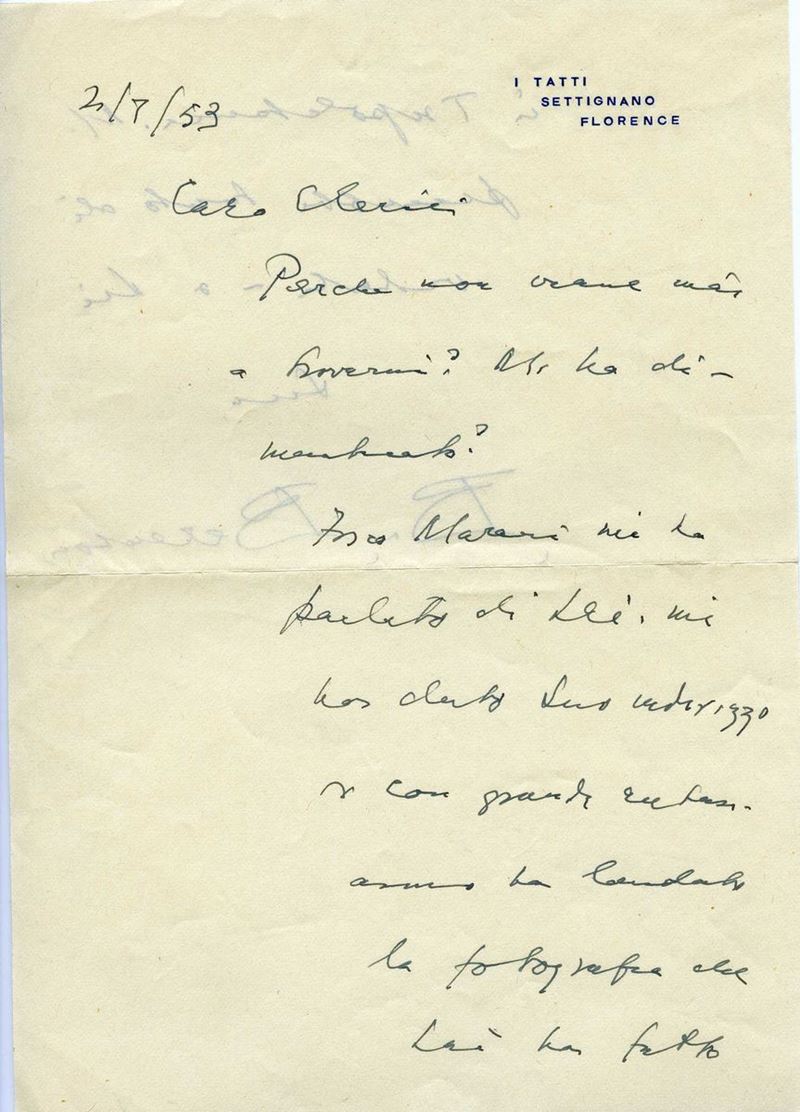 I TATTI
SETTIGNANO
FLORENCE
2/7/53
Caro Clerici
Perche non viene mai
a trovarmi? Mi ha di-
menticato?
Fosco Maraini mi ha
parlato di Lei, mi
ha dato Suo indirizzo
e con grande entusi-
asmo ha laudato
la fotografia che
Lei ha fatto